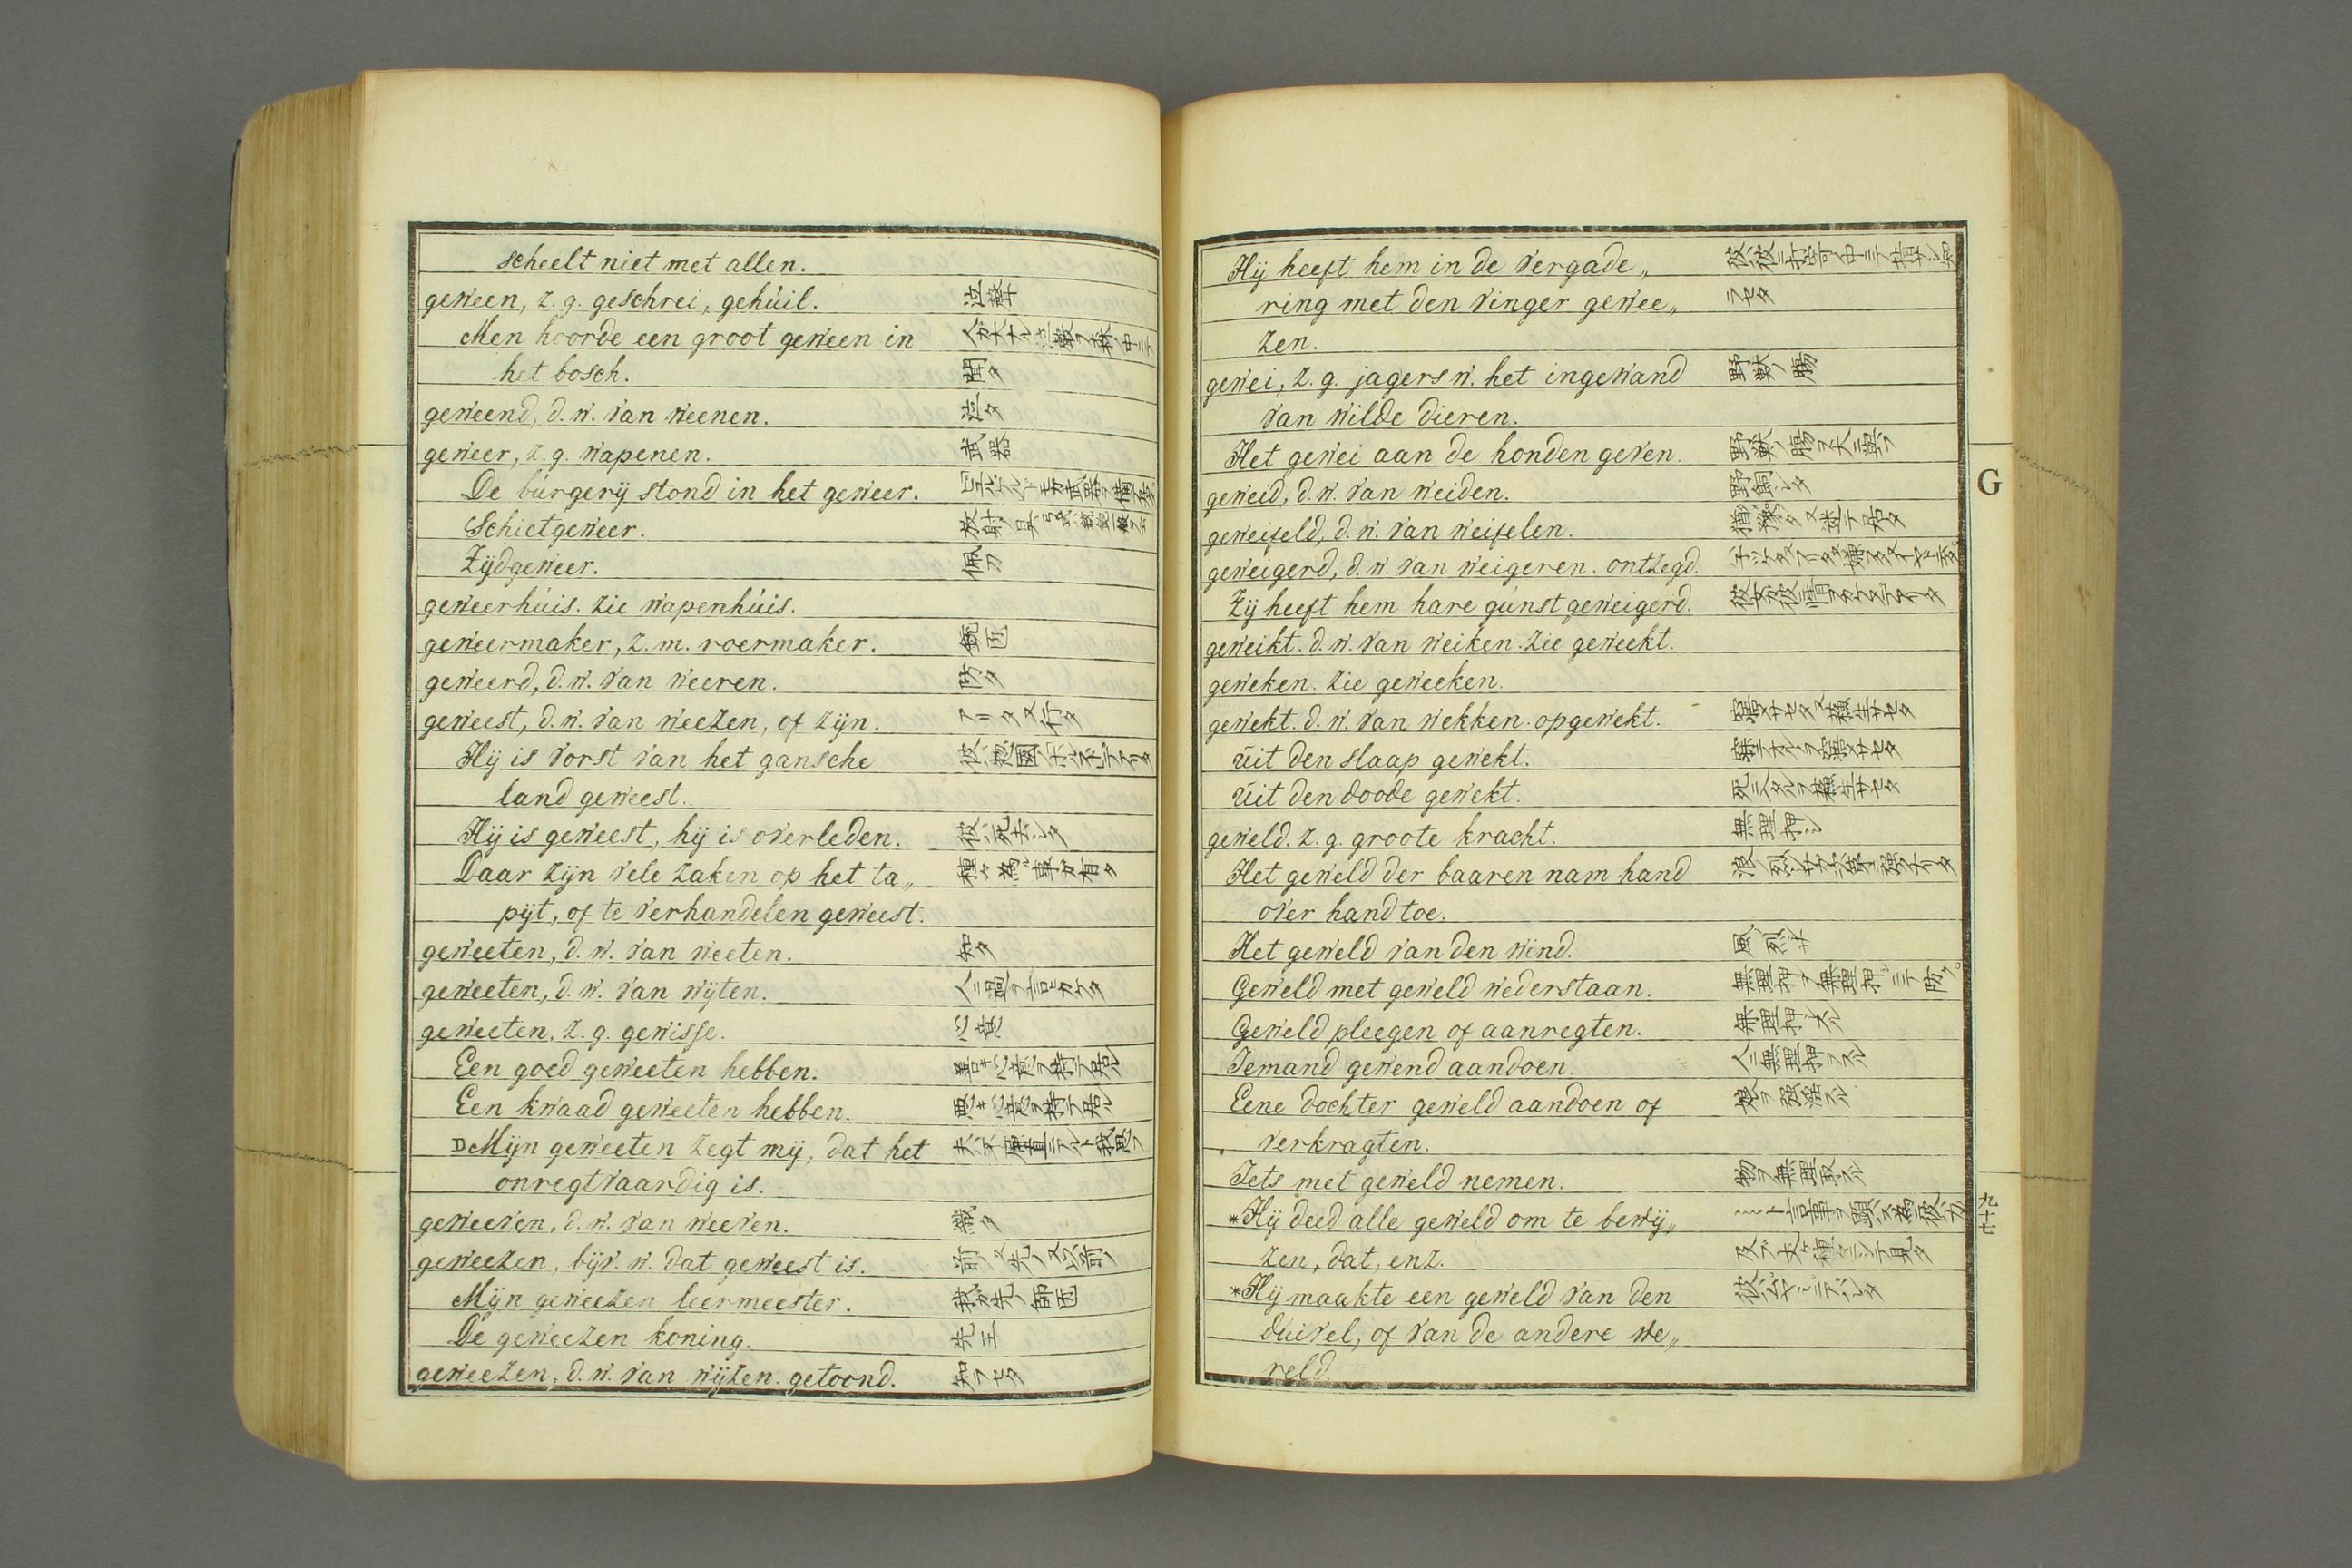 scheelt niet met allen.
geween, z. g. geschrei, gehúil. 泣聲
Men hoorde een groot geween in 人ガ大ナル泣聲ヲ森ノ中ニテ
het bosch. 聞タ
geweend, d. w. van weenen. 泣タ
geweer, z. g. wapenen. 武器
De búrgerij stond in het geweer.
Schietgeweer.
Zijdgeweer. 佩刀
geweerhúis. zie wapenhúis.
geweermaker, z. m. roermaker. 銃匠
geweerd, d. w. van weeren. 防タ
geweest, d. w. van weezen, of zijn. アリタ又行タ
Hij is vorst van het gansche
land geweest.
Hij is geweest, hij is overleden. 彼ハ死去シタ
Daar zijn vele zaken op het ta„ 種々為ル事ガ有タ
pijt, of te verhandelen geweest.
geweeten, d. w. van weeten. 知タ
geweeten, d. w. van wijten.
geweeten, z. g. gewisse. 心意
Een goed geweeten hebben. 善キ心意ヲ持テ居ル
Een kwaad geweeten hebben. 悪キ心意ヲ持テ居ル
D Mijn geweeten zegt mij, dat het
onregtvaardig is.
geweeven, d. w. van weeven. 織タ
geweezen, bijv. w. dat geweest is.
Mijn geweezen leermeester. 我ガ先ノ師匠
De geweezen koning. 先王
geweezen, d. w. van wijzen. getoond. 知ラセタ
Hij heeft hem in de vergade„
ring met den vinger gewee„ ラセタ
zen.
gewei, z. g. jagers w. het ingewand 野獣ノ腸
van wilde dieren.
Het gewei aan de honden geven. 野獣ノ腸ヲ犬ニ與フ
geweid, d. w. van weiden. 野飼シタ
geweifeld, d. w. van weifelen. 猶豫タ又迷テ居タ
geweigerd, d. w. van weigeren. ontzegd.
Zij heeft hem hare gúnst geweigerd.
geweikt. d. w. van weiken. zie geweekt.
geweken. zie geweeken.
gewekt. d. w. van wekken. opgewekt. 寤サセタ又蘓生サセタ
úit den slaap gewekt.
úit den doode gewekt.
geweld. z. g. groote kracht. 無理押シ
Het geweld der baaren nam hand
over hand toe.
Het geweld van den wind. 風ノ烈サ
Geweld met geweld wederstaan. 無理押ヲ無理押シニテ防グ。
Geweld pleegen of aanregten. 無理押シスル
Iemand gewend aandoen. 人ニ無理押ヲスル
Eene dochter geweld aandoen of 娘ヲ強淫スル
verkragten.
Iets met geweld nemen. 物ヲ無理取スル
*Hij deed alle geweld om te bewij„
zen, dat, enz.
*Hij maakte een geweld van den
dúivel, of van de andere we„
reld.
G
九十七